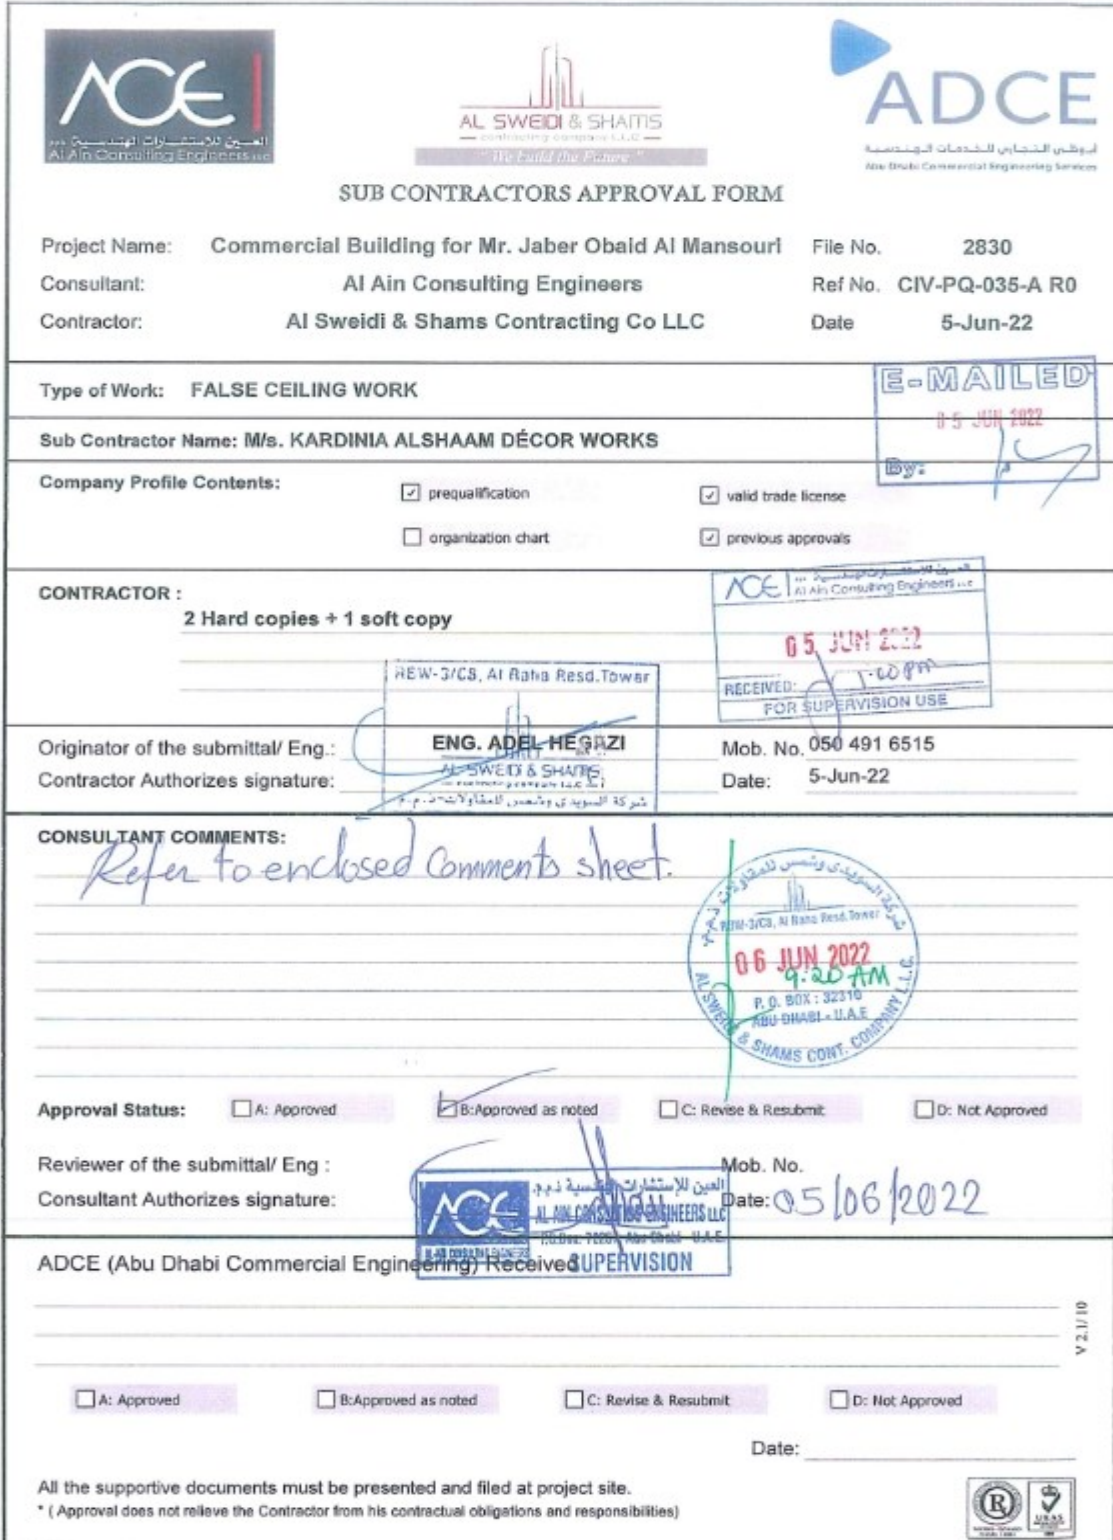 ACE
العين للاستشارات الهندسية ذ.م.م
Al Ain Consulting Engineers LLC
AL SWEIDI & SHAMS
contracting company L.L.C
"We build the Future"
ADCE
أبوظبي التجاري للخدمات الهندسية
Abu Dhabi Commercial Engineering Services
SUB CONTRACTORS APPROVAL FORM
Project Name: Commercial Building for Mr. Jaber Obaid Al Mansouri File No. 2830
Consultant: Al Ain Consulting Engineers Ref No. CIV-PQ-035-A R0
Contractor: Al Sweidi & Shams Contracting Co LLC Date 5-Jun-22
Type of Work: FALSE CEILING WORK
E-MAILED
05 JUN 2022
By:
Sub Contractor Name: M/s. KARDINIA ALSHAAM DÉCOR WORKS
Company Profile Contents: prequalification valid trade license
organization chart previous approvals
CONTRACTOR :
2 Hard copies + 1 soft copy
ACE
Al Ain Consulting Engineers LLC
05 JUN 2022
RECEIVED: 1:00 PM
FOR SUPERVISION USE
REW-3/C8, Al Raha Resd.Tower
Originator of the submittal/ Eng.: ENG. ADEL HEGAZI Mob. No. 050 491 6515
AL SWEIDI & SHAMS
Contractor Authorizes signature: Date: 5-Jun-22
شركة السويدي وشمس للمقاولات ذ.م.م
CONSULTANT COMMENTS:
Refer to enclosed Comments sheet.
شركة السويدي وشمس للمقاولات ذ.م.م
REW-3/C8, Al Raha Resd. Tower
06 JUN 2022
9:20 AM
P. O. BOX : 32316
ABU DHABI - U.A.E
AL SWEIDI & SHAMS CONT. COMPANY L.L.C.
Approval Status: A: Approved B:Approved as noted C: Revise & Resubmit D: Not Approved
Reviewer of the submittal/ Eng : Mob. No.
Consultant Authorizes signature: Date: 05/06/2022
ACE
AL AIN CONSULTING ENGINEERS
العين للإستشارات الهندسية ذ.م.م.
AL AIN CONSULTING ENGINEERS LLC
Abu Dhabi - U.A.E.
SUPERVISION
ADCE (Abu Dhabi Commercial Engineering) Received
V 2.1/10
A: Approved B:Approved as noted C: Revise & Resubmit D: Not Approved
Date:
All the supportive documents must be presented and filed at project site.
* ( Approval does not relieve the Contractor from his contractual obligations and responsibilities)
R
UKAS